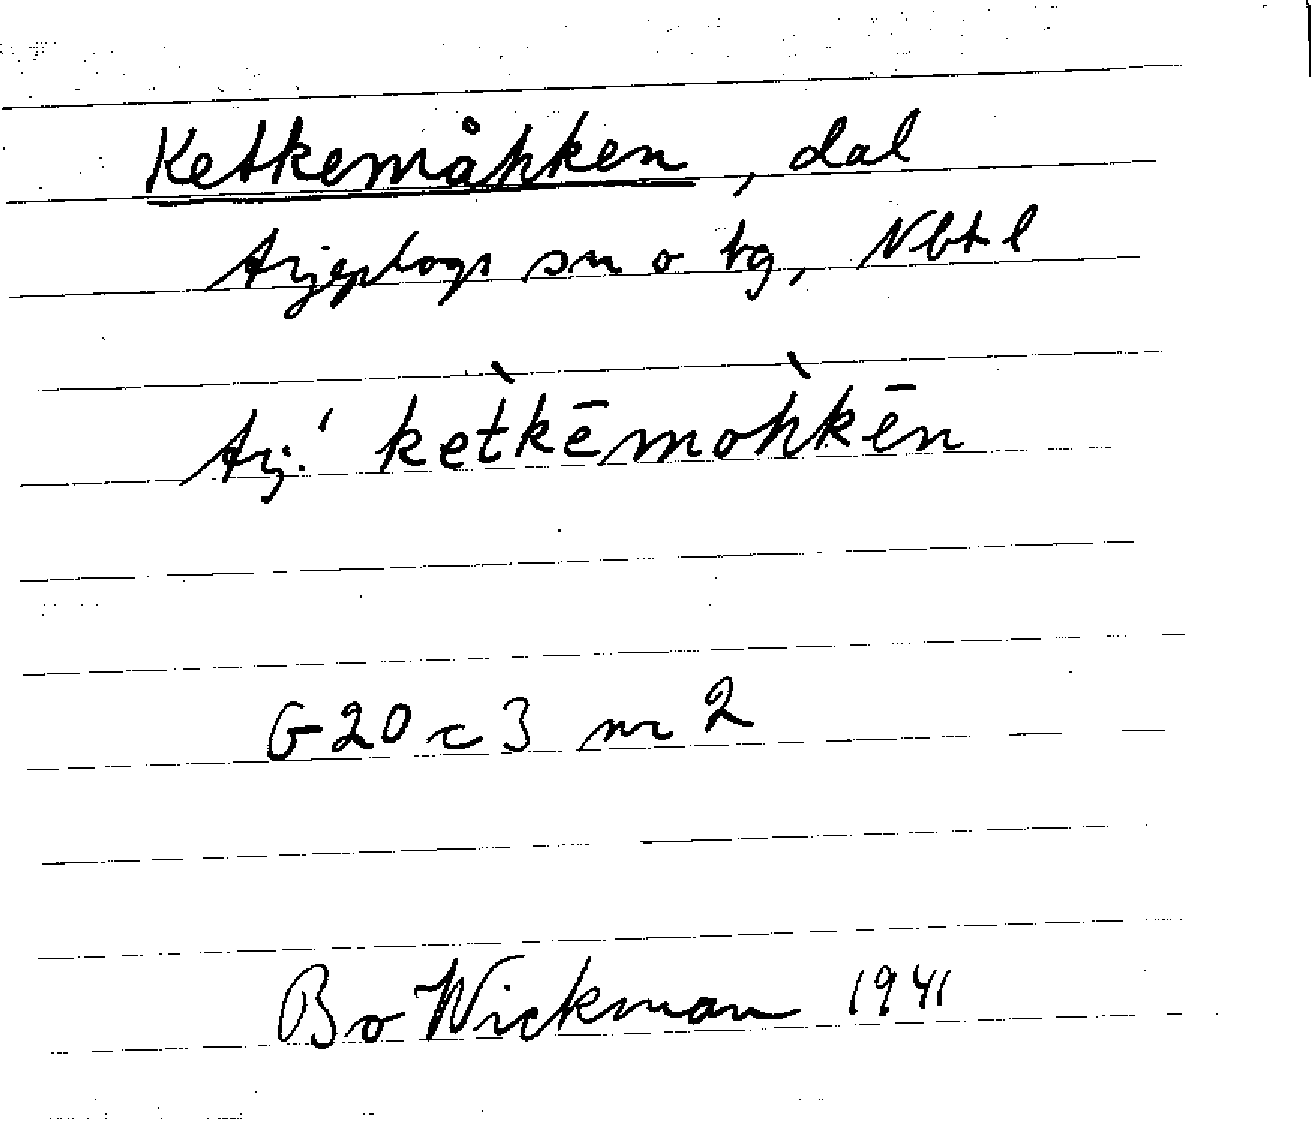 Ketkemåhken, dal
Arjeplogs sn o tg, Nbtl
Arj! ket̀kēmoh̀kēn
G20 c3 nr 2
Bo Wickman 1941